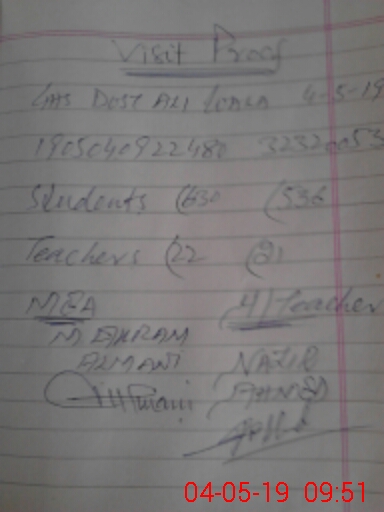 Visit Proof
GHS DOST ALI 4-5-19
1905040922480 32320053
Students (630 (536
Teachers (22 (21
MEA H/Teacher
M EKRAM
ALMANI NAZIR
AHMED
04-05-19 09:51